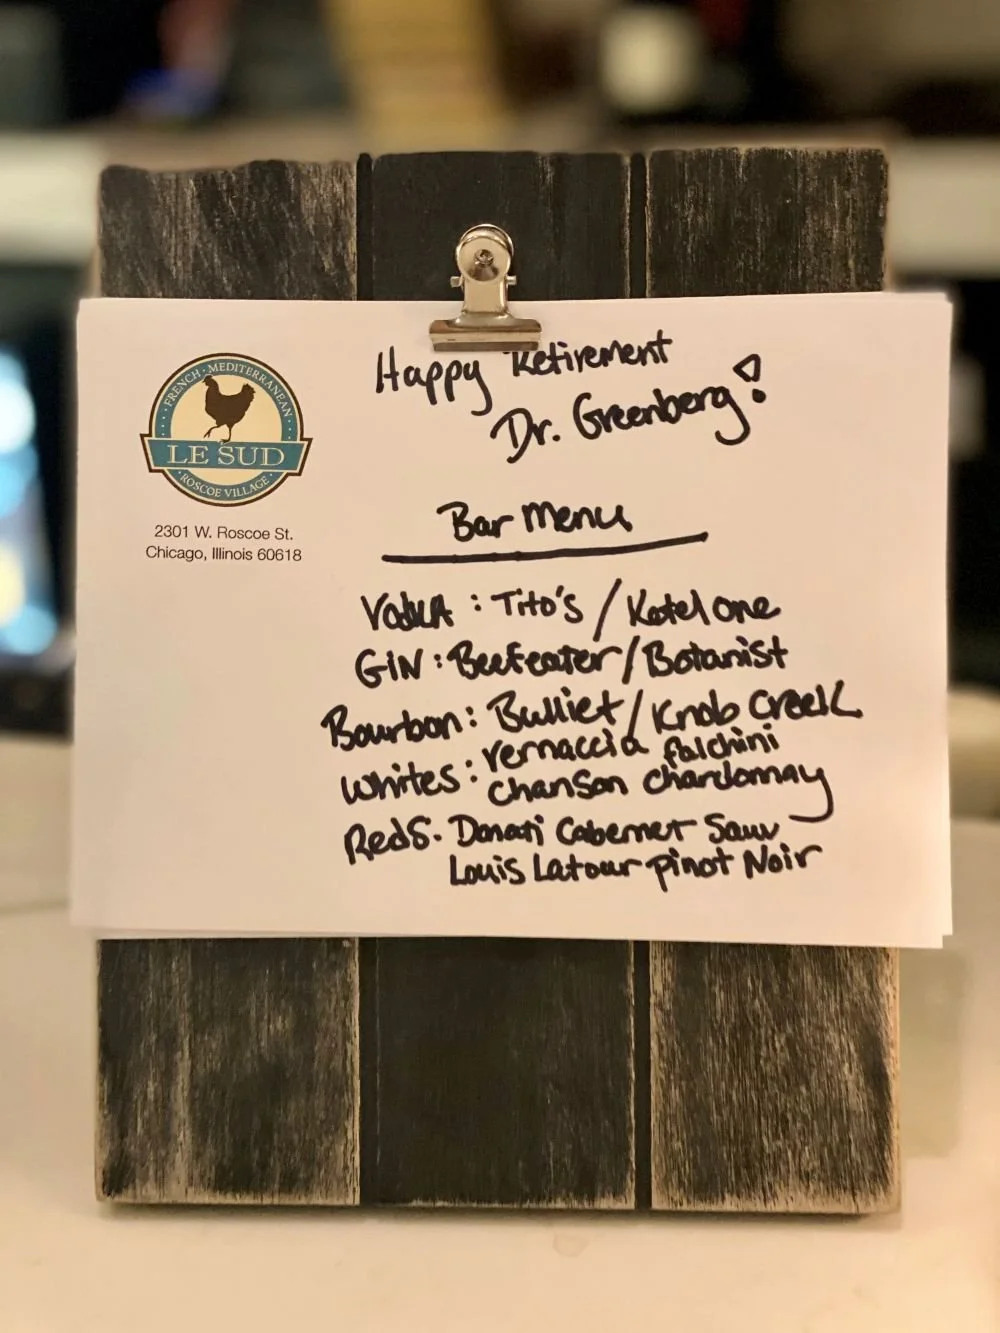 FRENCH · MEDITERRANEAN
LE SUD
ROSCOE VILLAGE
2301 W. Roscoe St.
Chicago, Illinois 60618
Happy Retirement
Dr. Greenberg!
Bar Menu
Vodka : Tito's / Ketel one
GIN : Beefeater / Botanist
Bourbon : Bulliet / Knob Creek
Whites : Vernaccia falchini
Chanson Chardonnay
Reds. Donati Cabernet Sauv
Louis Latour Pinot Noir